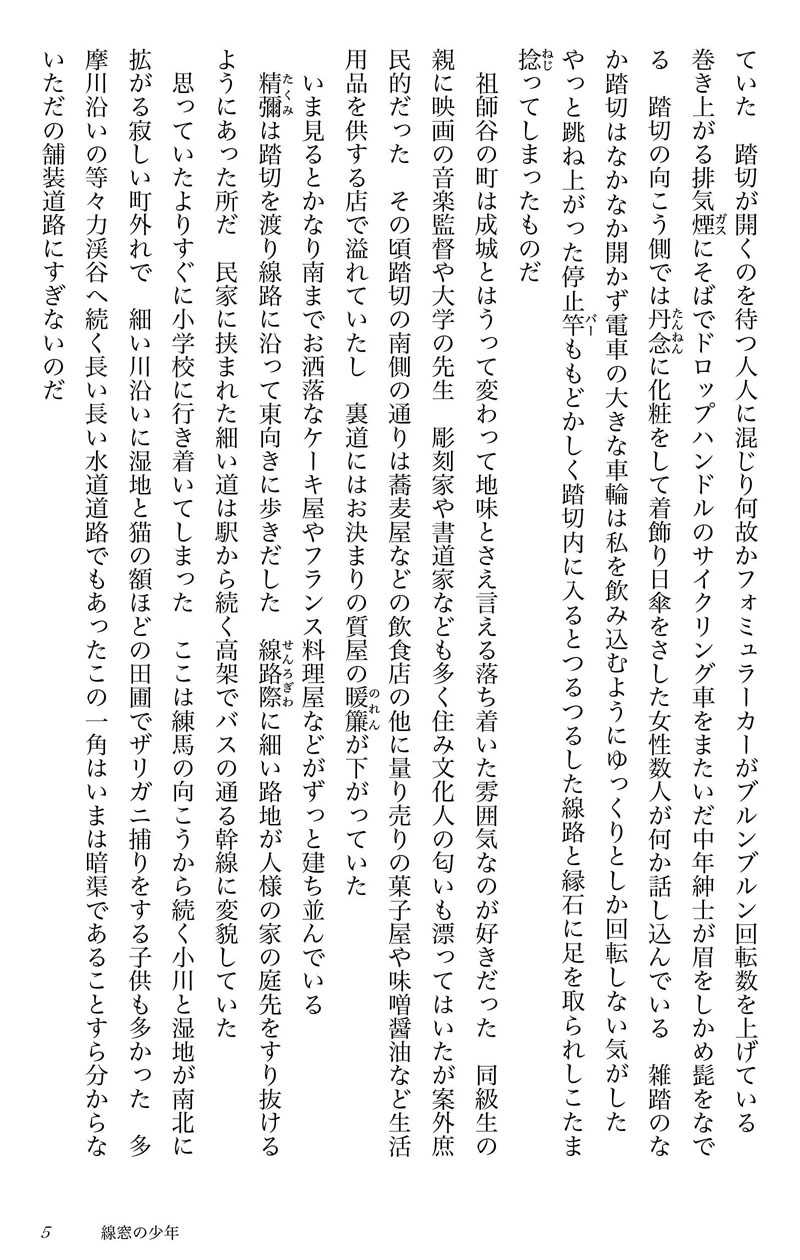 ていた　踏切が開くのを待つ人人に混じり何故かフォミュラーカーがブルンブルン回転数を上げている
巻き上がる排気煙ガスにそばでドロップハンドルのサイクリング車をまたいだ中年紳士が眉をしかめ髭をなで
る　踏切の向こう側では丹念たんねんに化粧をして着飾り日傘をさした女性数人が何か話し込んでいる　雑踏のな
か踏切はなかなか開かず電車の大きな車輪は私を飲み込むようにゆっくりとしか回転しない気がした
やっと跳ね上がった停止竿バーももどかしく踏切内に入るとつるつるした線路と縁石に足を取られしこたま
捻ねじってしまったものだ
祖師谷の町は成城とはうって変わって地味とさえ言える落ち着いた雰囲気なのが好きだった　同級生の
親に映画の音楽監督や大学の先生　彫刻家や書道家なども多く住み文化人の匂いも漂ってはいたが案外庶
民的だった　その頃踏切の南側の通りは蕎麦屋などの飲食店の他に量り売りの菓子屋や味噌醤油など生活
用品を供する店で溢れていたし　裏道にはお決まりの質屋の暖簾のれんが下がっていた
いま見るとかなり南までお洒落なケーキ屋やフランス料理屋などがずっと建ち並んでいる
精彌たくみは踏切を渡り線路に沿って東向きに歩きだした　線路際せんろぎわに細い路地が人様の家の庭先をすり抜ける
ようにあった所だ　民家に挟まれた細い道は駅から続く高架でバスの通る幹線に変貌していた
思っていたよりすぐに小学校に行き着いてしまった　ここは練馬の向こうから続く小川と湿地が南北に
拡がる寂しい町外れで　細い川沿いに湿地と猫の額ほどの田圃でザリガニ捕りをする子供も多かった　多
摩川沿いの等々力渓谷へ続く長い長い水道道路でもあったこの一角はいまは暗渠であることすら分からな
いただの舗装道路にすぎないのだ
5　線窓の少年